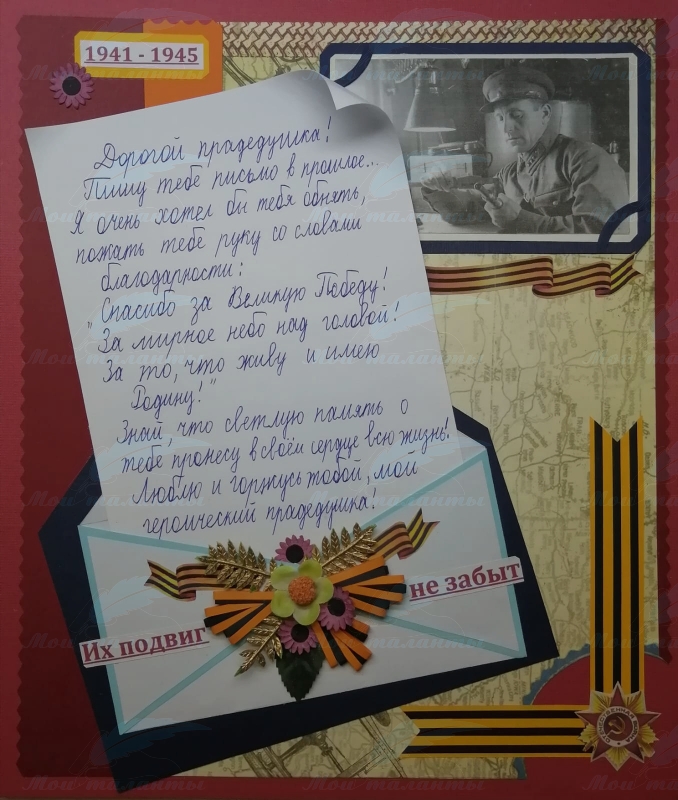 1941 - 1945
Дорогой прадедушка!
Пишу тебе письмо в прошлое...
Я очень хотел бы тебя обнять,
пожать тебе руку со словами
благодарности:
"Спасибо за Великую Победу!
За мирное небо над головой!
За то, что живу и имею
Родину!"
Знай, что светлую память о
тебе пронесу в своём сердце всю жизнь!
Люблю и горжусь тобой, мой
героический прадедушка!
Их подвиг
не забыт
Мои таланты